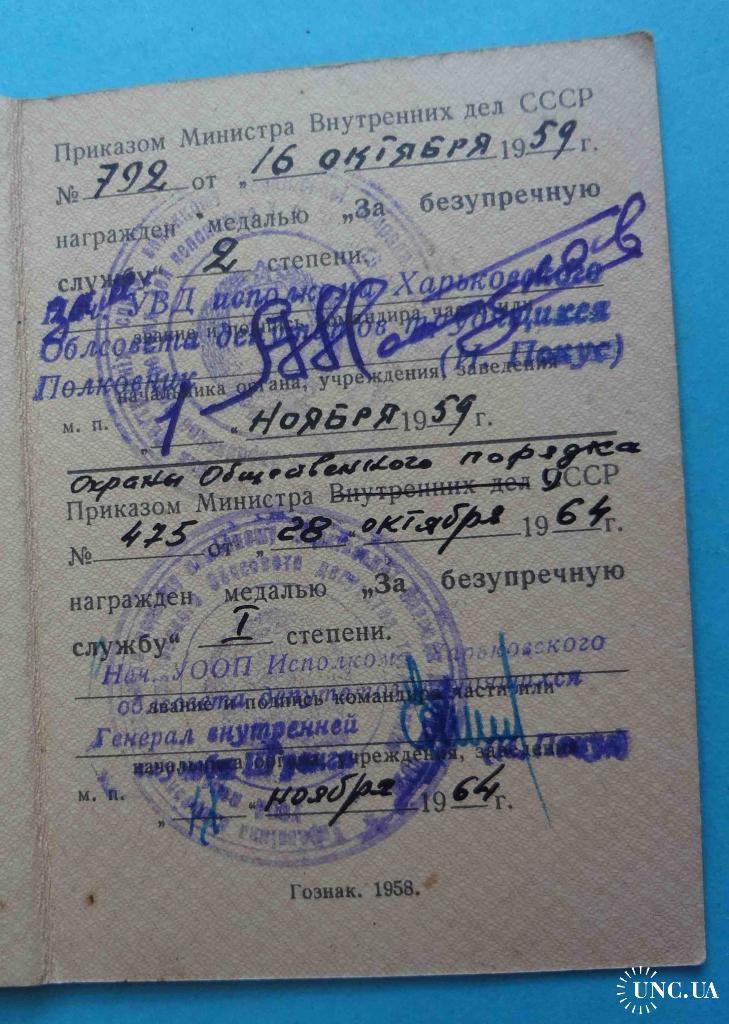 Приказом Министра Внутренних дел СССР
№ 792 от „16 октября 1959 г.
награжден медалью „За безупречную
службу“ 2 степени.
Нач. УВД исполкома Харьковского
Облсовета депутатов трудящихся
звание и подпись командира части или
Полковник (П. Покус)
начальника органа, учреждения, заведения
м. п. „ “ ноября 1959 г.
Охраны Общественного порядка
Приказом Министра Внутренних дел СССР
№ 475 от „28“ октября 1964 г.
награжден медалью „За безупречную
службу“ I степени.
Нач. УООП Исполкома Харьковского
облсовета депутатов трудящихся
звание и подпись командира части или
Генерал внутренней
начальника органа, учреждения, заведения
м. п. „ “ ноября 1964 г.
Гознак. 1958.
UNC.UA